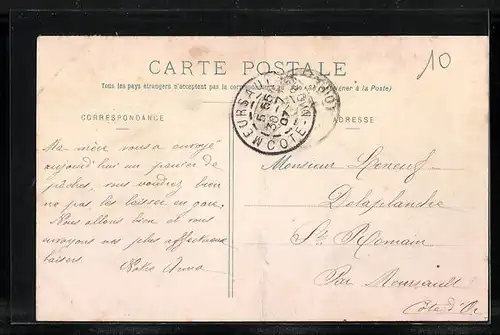 10
CARTE POSTALE
Tous les pays étrangers n'acceptent pas la correspondance à la Poste)
CORRESPONDANCE
ADRESSE
MEURSAULT
5 55
30 -7
07
COTE-D'OR
Ma mère vous a envoyé
aujourd'hui un panier de
pêches, vous voudrez bien
ne pas les laisser en gare.
Nous allons bien et vous
envoyons nos plus affectueux
baisers.
Votre Anna
Monsieur
Delaplanche
St Romain
Par Meursault
Côte d'Or